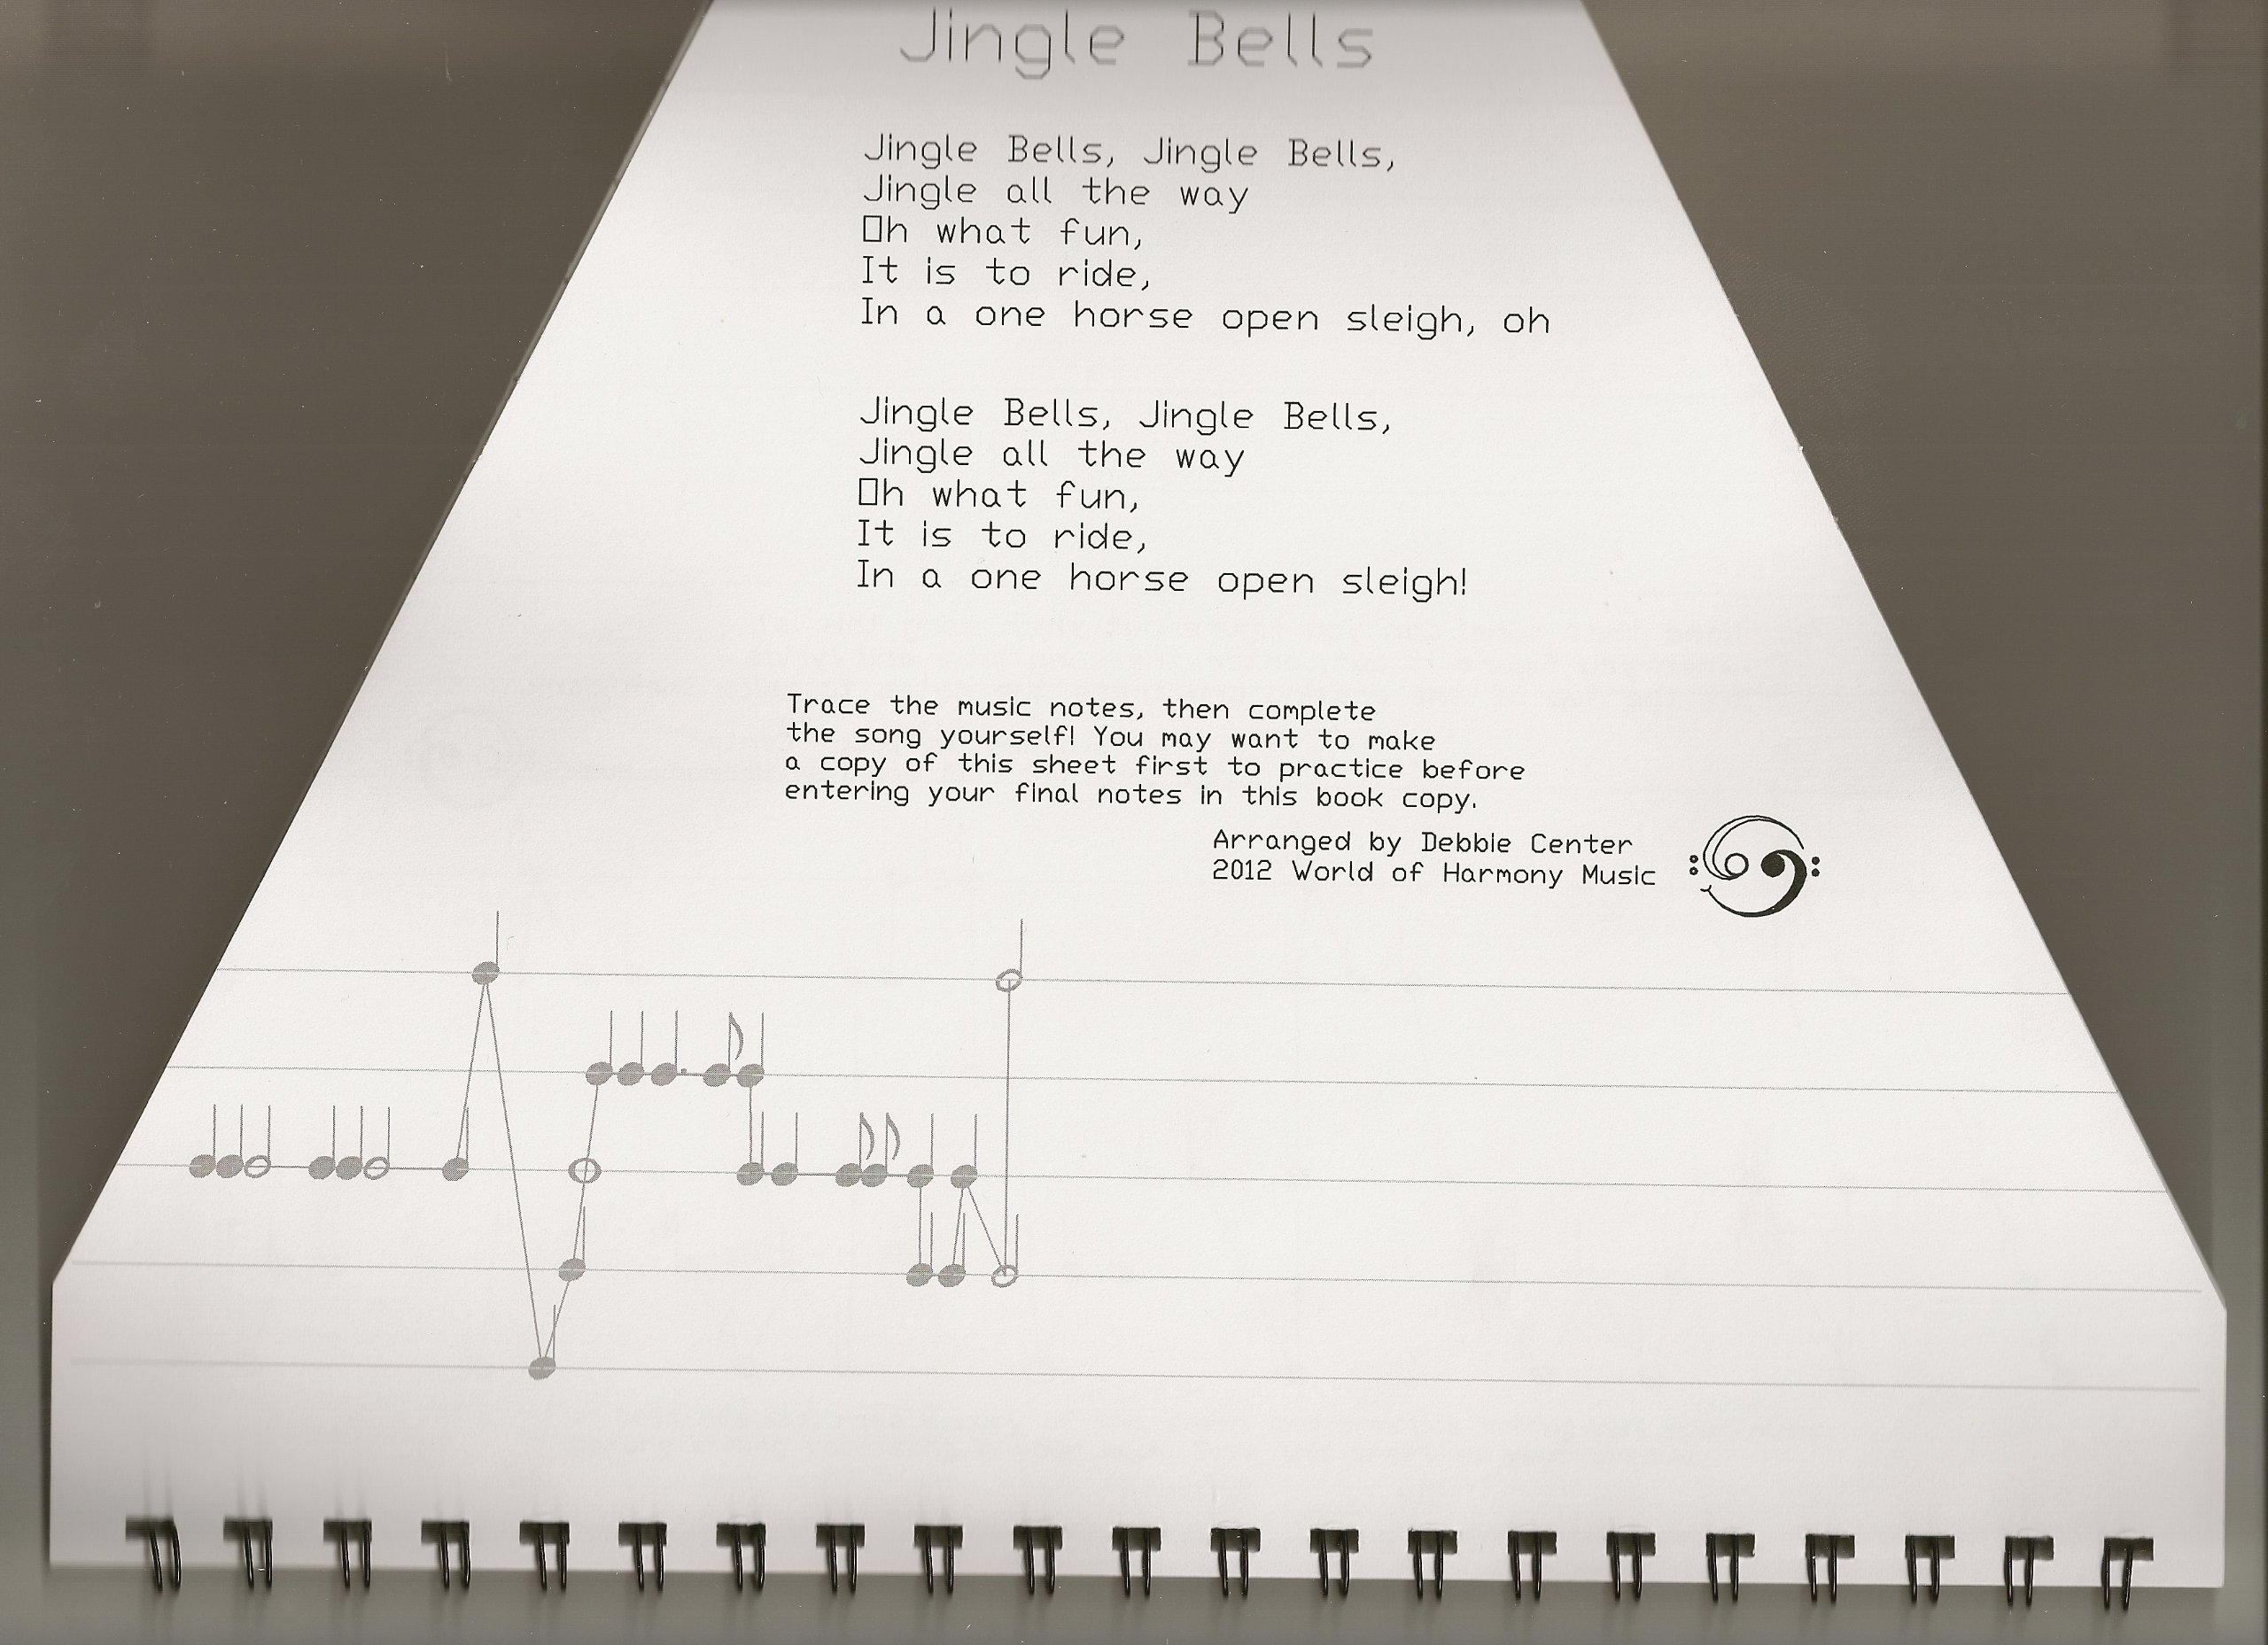 Jingle Bells
Jingle Bells, Jingle Bells,
Jingle all the way
Oh what fun,
It is to ride,
In a one horse open sleigh, oh
Jingle Bells, Jingle Bells,
Jingle all the way
Oh what fun,
It is to ride,
In a one horse open sleigh!
Trace the music notes, then complete
the song yourself! You may want to make
a copy of this sheet first to practice before
entering your final notes in this book copy.
Arranged by Debbie Center
2012 World of Harmony Music